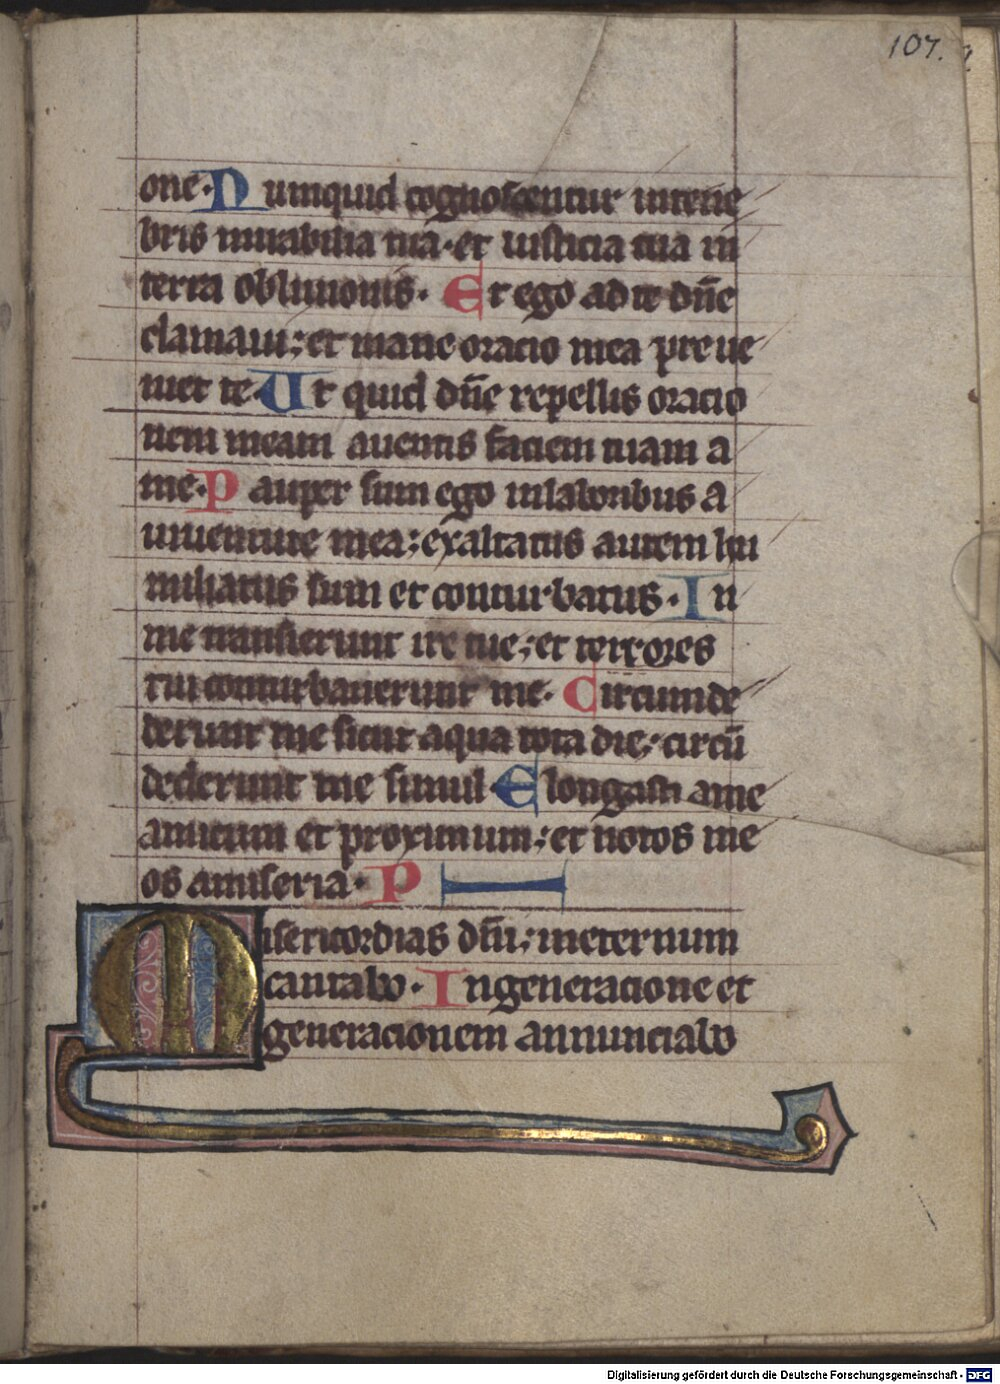 107.
one. Numquid cognoscentur intene
bris mirabilia tua. et iusticia tua in
terra obliuionis. Et ego ad te dñe
clamaui; et mane oracio mea preue
niet te. Ut quid dñe repellis oracio
nem meam auertis faciem tuam a
me. Pauper sum ego inlaboribus a
iuuentute mea; exaltatus autem hu
miliatus sum et conturbatus. In
me transierunt ire tue; et terrores
tui conturbauerunt me. Circumde
derunt me sicut aqua tota die; circū
dederunt me simul Elongasti ame
amicum et proximum; et notos me
os amiseria. P I
Misericordias dñi; ineternum
cantabo. Ingeneracione et
generacionem annunciabo
Digitalisierung gefördert durch die Deutsche Forschungsgemeinschaft - DFG